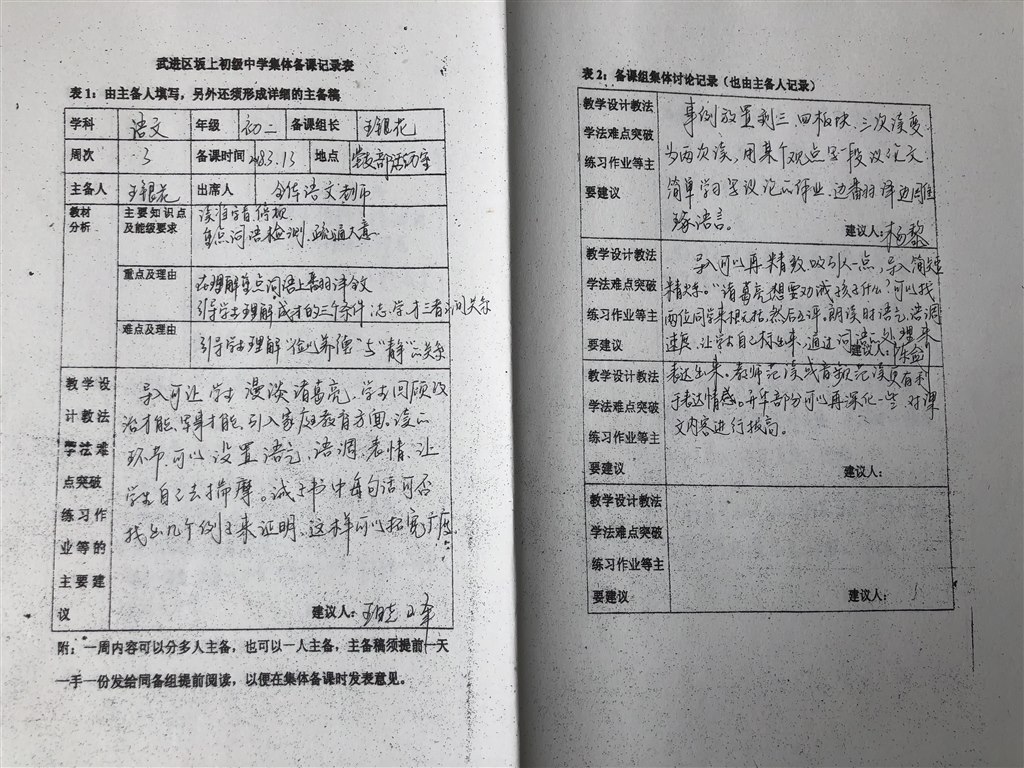 武进区坂上初级中学集体备课记录表
表1：由主备人填写，另外还须形成详细的主备稿
学科 语文 年级 初二 备课组长 王银花
周次 3 备课时间 83.13 地点 党支部活动室
主备人 王银花 出席人 全体语文老师
教材分析 主要知识点及能级要求 读准字音，停顿
重点词语检测，疏通大意
重点及理由 在理解重点词语上翻译全文
引导学生理解成才的三个条件：志、学、才三者之间关系
难点及理由
引导学生理解“俭以养德”与“静”的关系
教学设计教法学法难点突破练习作业等的主要建议
导入可让学生漫谈诸葛亮，学生回顾政
治才能、军事才能，引入家庭教育方面。读的
环节，可以设置语气、语调、表情，让
学生自己去揣摩。诫子书中每句话可否
找出几个例子来证明，这样可以拓宽广度
建议人：
附：一周内容可以分多人主备，也可以一人主备，主备稿须提前一天
一手一份发给同备组提前阅读，以便在集体备课时发表意见。
表2：备课组集体讨论记录（也由主备人记录）
教学设计教法 事例放置到三、四板块，三次读变
学法难点突破 为两次读，用某个观点写一段议论文
练习作业等主 简单学习写议论的作业，边翻译边围
要建议 琢语言。
建议人：杨黎
教学设计教法 导入可以再精致，吸引人一点，导入简短
学法难点突破 精炼。“诸葛亮想要劝诫孩子什么？”可以找
练习作业等主 两位同学来概括，然后互评，朗读时语气、语调
要建议 速度，让学生自己标出来，通过词语的处理来
建议人：
教学设计教法 表达出来。教师范读或音频范读更有利
学法难点突破 于表达情感。升华部分可以再深化一些，对课
练习作业等主 文内容进行拔高。
要建议 建议人：
教学设计教法
学法难点突破
练习作业等主
要建议 建议人：